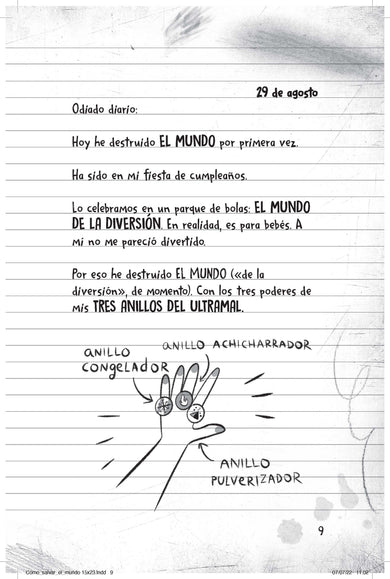 29 de agosto
Odiado diario:
Hoy he destruido EL MUNDO por primera vez.
Ha sido en mi fiesta de cumpleaños.
Lo celebramos en un parque de bolas: EL MUNDO
DE LA DIVERSIÓN. En realidad, es para bebés. A
mi no me pareció divertido.
Por eso he destruido EL MUNDO («de la
diversión», de momento). Con los tres poderes de
mis TRES ANILLOS DEL ULTRAMAL.
ANILLO
CONGELADOR
ANILLO ACHICHARRADOR
ANILLO
PULVERIZADOR
9
Como_salvar_el_mundo 15x23.indd 9
07/07/22 11:02